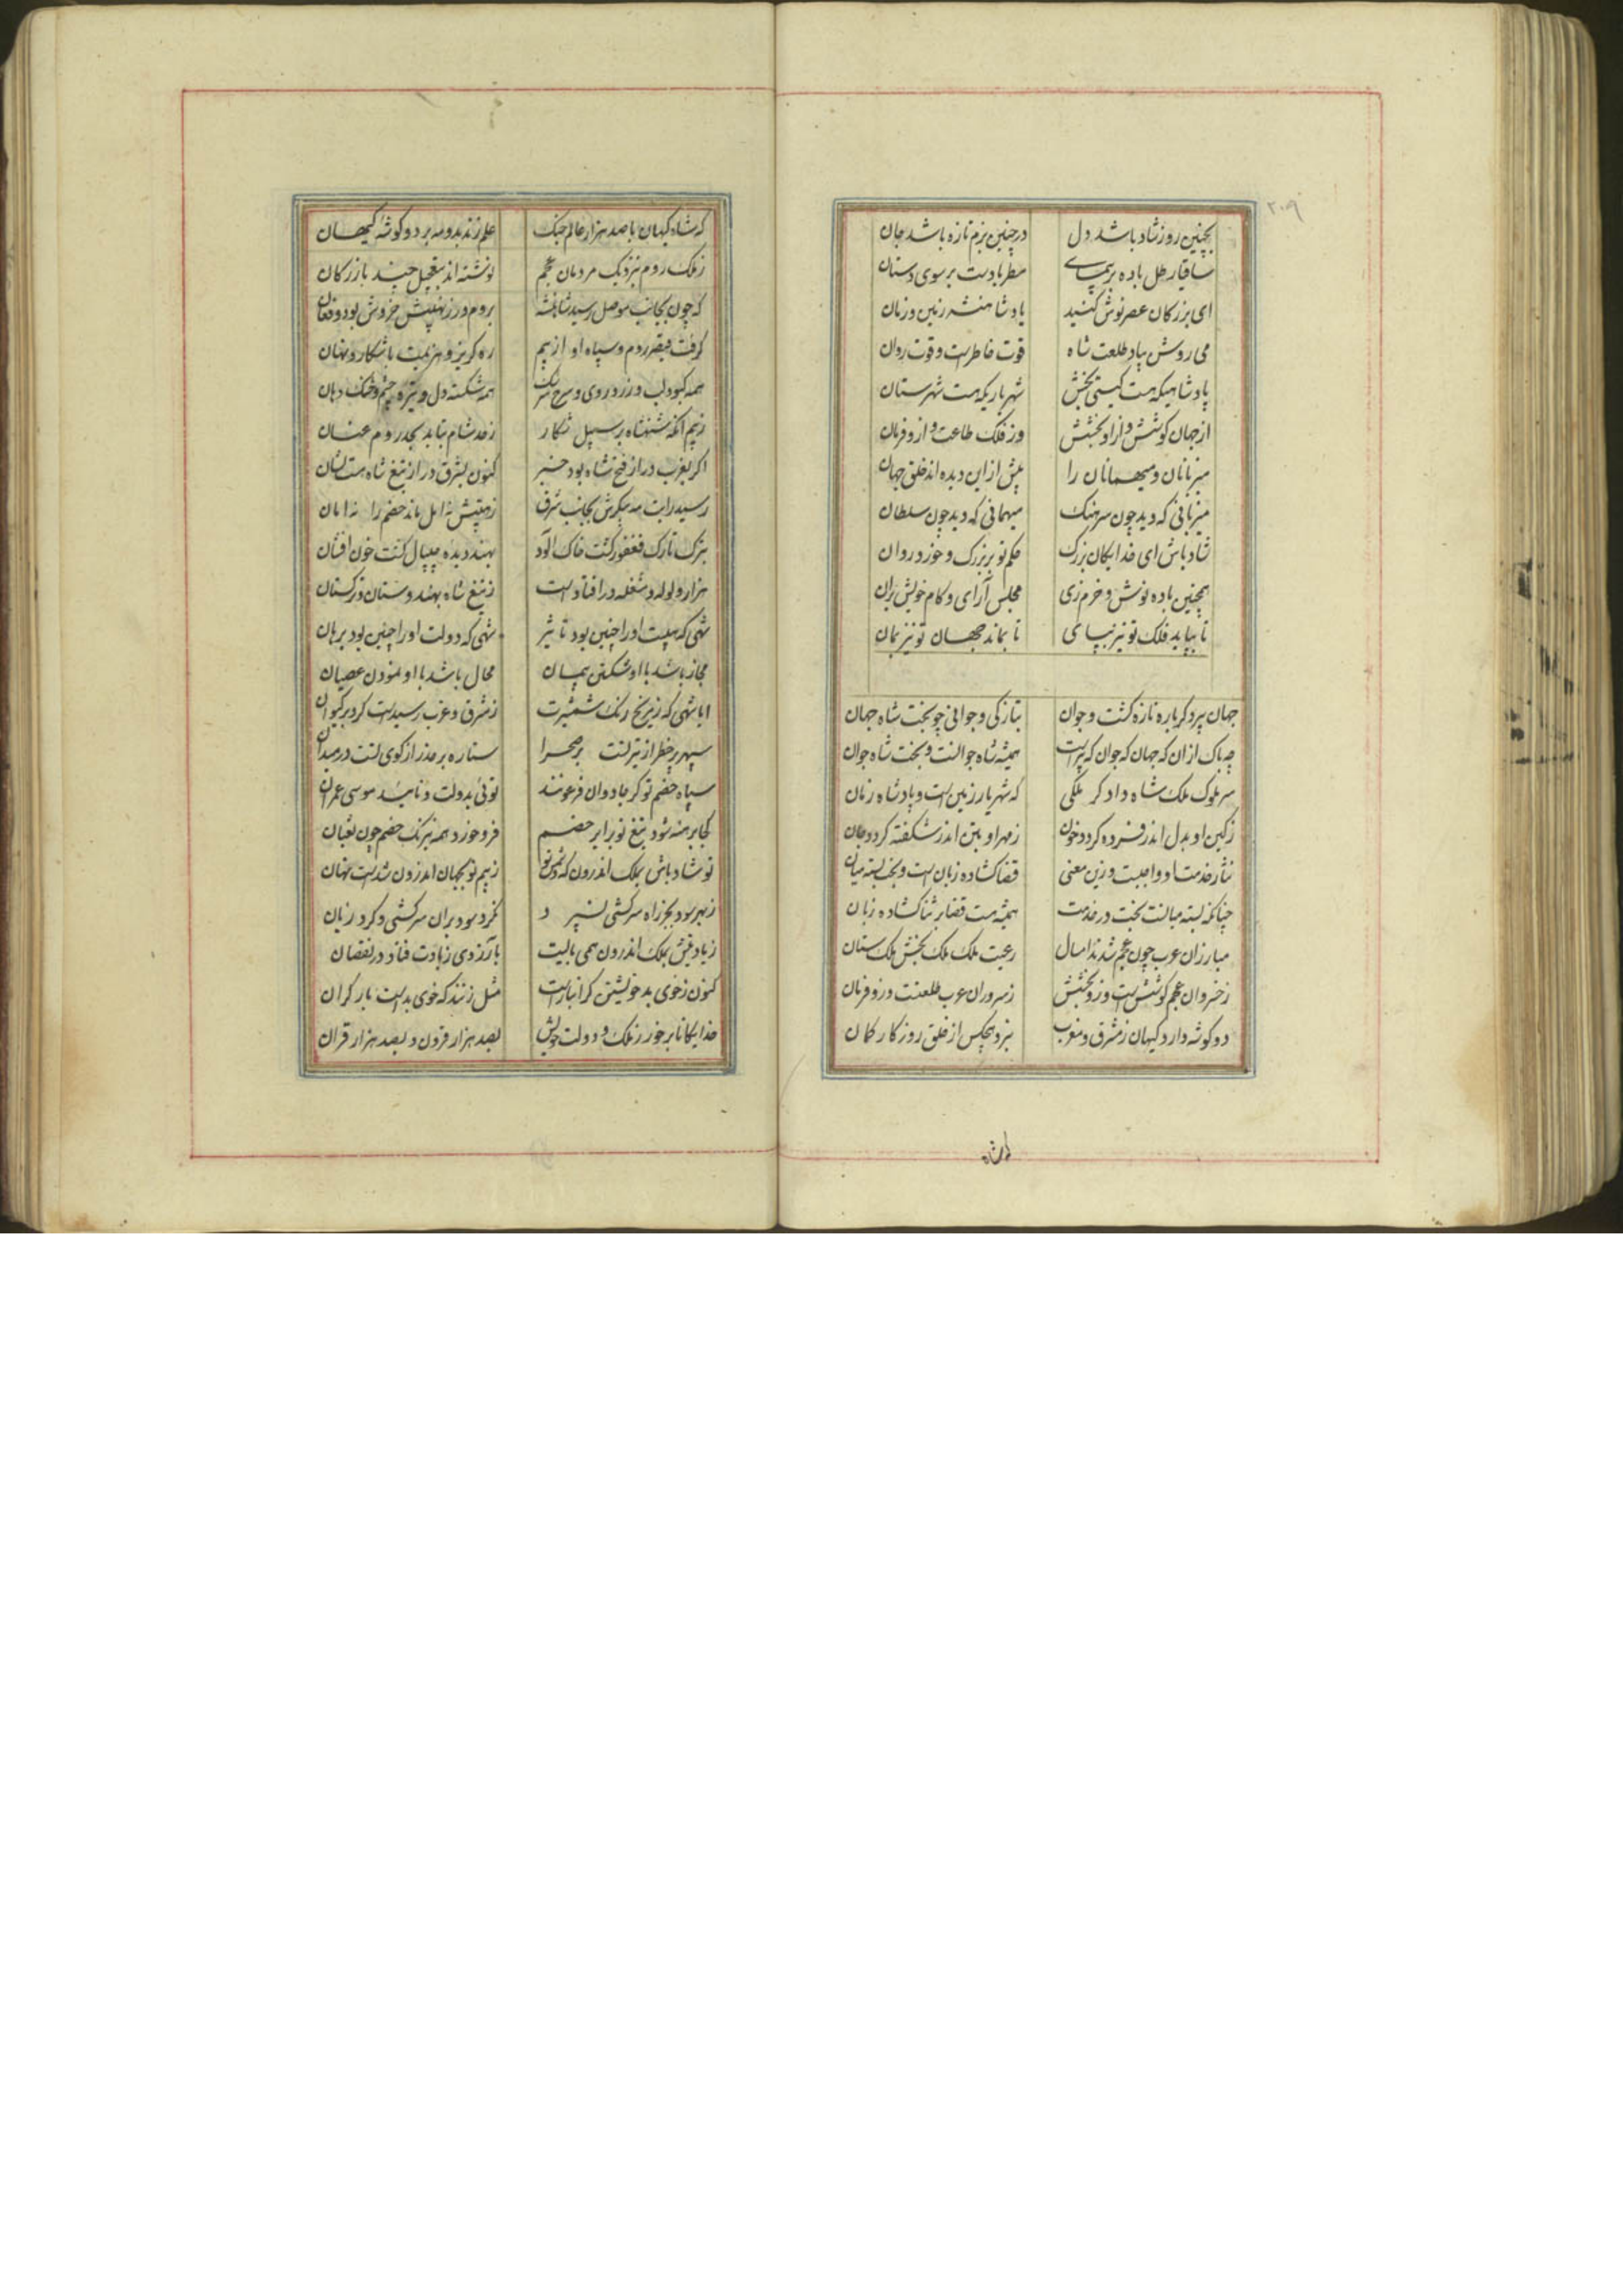 ۲۰۹
بچنین روز شاد باشد دل در چنین بزم تازه باشد جان
ساقیا رطل باده بر پیمای مطربا دست بر سوی دستان
ای بزرکان عصر نوش کنید یاد شاهنشه زمین و زمان
می روشن بیاد طلعت شاه قوت خاطرست و قوت روان
پادشاهیکه هست کیتی بخش شهریاریکه هست شهرستان
از جهان کوشش و ازاو بخشش وز فلک طاعت و ازو فرمان
میزبانان و میهمانان را پیش از این دیده اند خلق جهان
میزبانی که دید چون سرهنک میهمانی که دید چون سلطان
شاد باش ای خدایکان بزرک حکم تو بر بزرک و خورد روان
همچنین باده نوش و خرم زی مجلس آرای و کام خویش بران
تا بپاید فلک تو نیز بپای تا بماند جهان تو نیز بمان
جهان پیر دکرباره تازه کشت و جوان بتازکی و جوانی چو بخت شاه جهان
چه باک ازان که جهان که جوان که پیرست همیشه شاه جوانست و بخت شاه جوان
سر ملوک ملک شاه دادکر ملکی که شهریار زمین است و پادشاه زمان
ز کین او بدل اندر فسرده کردد خون ز مهر او بتن اندر شکفته کردد جان
نثار خدمت او واجبست و زین معنی قضا کشاده زبان است و بخت بسته میان
چنانکه بسته میانست بخت در خدمت همیشه هست قضا بر ثنا کشاده زبان
مبارزان عرب چون عجم شدند امسال رعیت ملک ملک بخش ملک ستان
ز خسروان عجم کوشش است وزو بخشش ز سروران عرب طلعتست وزو فرمان
دو کوشه دارد کیهان ز مشرق و مغرب نبرد هیچکس از خلق روزکار کمان
که شاه کیهان با صد هزار عالم جنک علم زند بدو مه بر دو کوشه کیهان
ز ملک روم بنزدیک مردمان عجم نوشته اند بتعجیل چند بازرکان
که چون بجانب موصل رسید شاهنشه بروم در ز نهیبش خروش بود و فغان
کرفت قیصر روم و سپاه او از بیم ره کریز و هزیمت باشکار و نهان
همه کبود لب و زرد روی و سرخ سرشک همه شکسته دل و تیره چشم و خشک دهان
ز بیم آنکه شهنشاه بر سبیل شکار ز حد شام بتابد بحد روم عنان
اکر بغرب در از فتح شاه بود خبر کنون بشرق در از تیغ شاه هست نشان
رسید رایت مه پیکرش بجانب شرق ز هیبتش نه امل ماند خصم را نه امان
بترک تارک فغفور کشت خاک آلود بهند دیده چیپال کشت خون افشان
هزار ولوله و مشغله در افتادست ز تیغ شاه بهندوستان و ترکستان
شهی که هیبت او را چنین بود تاثیر شهی که دولت او را چنین بود برهان
مجاز باشد با او شکستن پیمان محال باشد با او نمودن عصیان
ایا شهی که ز نیرنک شمشیرت ز مشرق و غرب رسیدست کرد بر کیوان
سپهر پر خطر از تیر تست بر صحرا ستاره بر حذر از کوی تست در میدان
سپاه خصم تو کر جادوان فرعونند توئی بدولت و تائید موسی عمران
کجا برهنه شود تیغ تو برابر خصم فرو خورد همه نیرنک خصم چون ثعبان
تو شاد باش بملک اندرون که دشمن تو ز بیم تو بجهان اندرون شدست نهان
ز بهر سود بجز راه سرکشی نسپرد نکرد سود بران سرکشی و کرد زیان
ز یاد بیش بملک اندرون همی بالیت بآرزوی زیادت فتاد در نقصان
کنون ز خوی بد خویشتن کرانبارست مثل زنند که خوی بدست بار کران
خدایکانا بر خور ز ملک و دولت خویش بصد هزار قرون و بصد هزار قران
که شاه